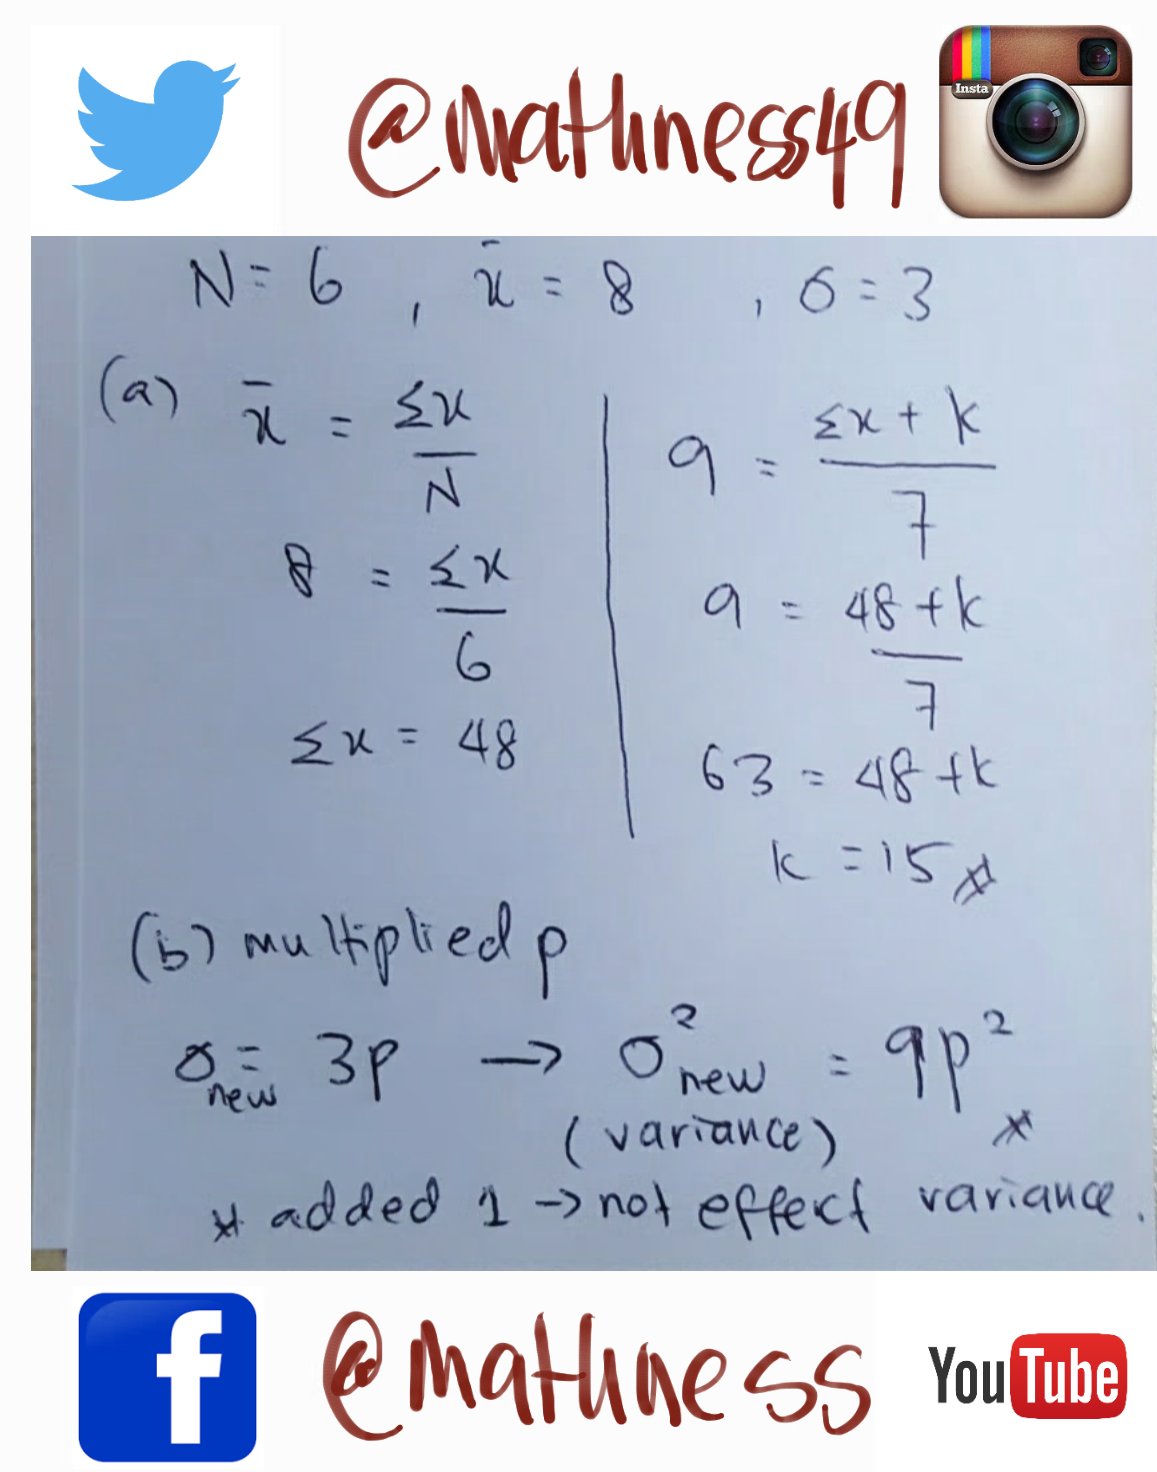 @mathness49
Insta
N = 6 , x̄ = 8 , σ = 3
(a) x̄ = Σx / N
8 = Σx / 6
Σx = 48
9 = Σx + k / 7
9 = 48 + k / 7
63 = 48 + k
k = 15 #
(b) multiplied p
σnew = 3p → σ²new = 9p² *
(variance)
* added 1 → not effect variance.
f
@mathness
YouTube